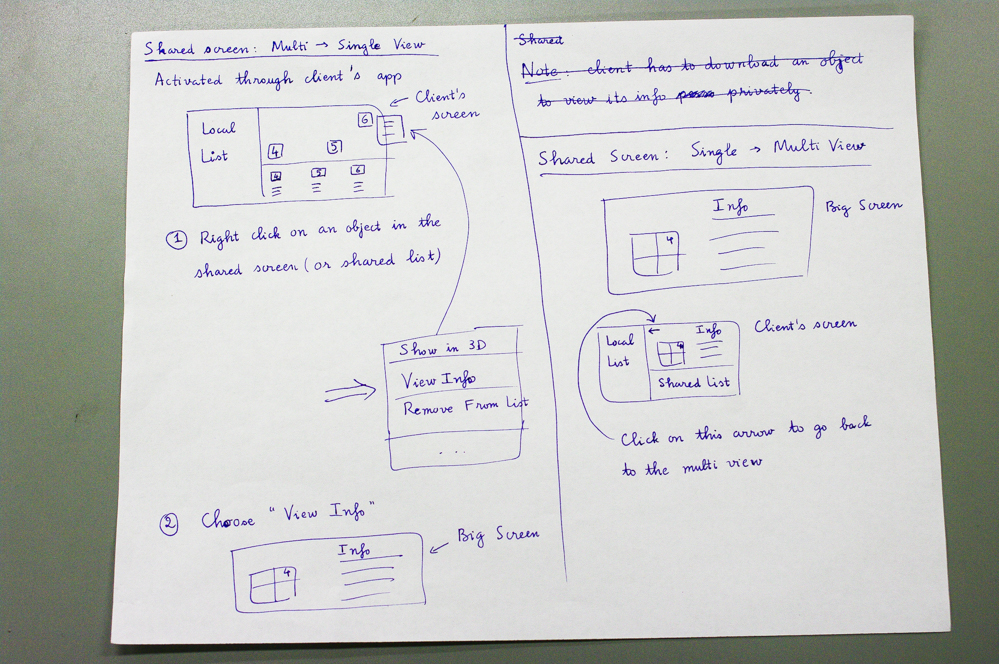 Shared screen: Multi → Single View
Activated through client's app
Client's
screen
Local
List
6
4
5
4
5
6
① Right click on an object in the
shared screen (or shared list)
Show in 3D
View Info
Remove From List
...
② Choose "View Info"
Big Screen
Info
4
Shared
Note: client has to download an object
to view its info privately.
Shared Screen: Single → Multi View
Big Screen
Info
4
Client's screen
Local
List
←
Info
4
Shared List
Click on this arrow to go back
to the multi view